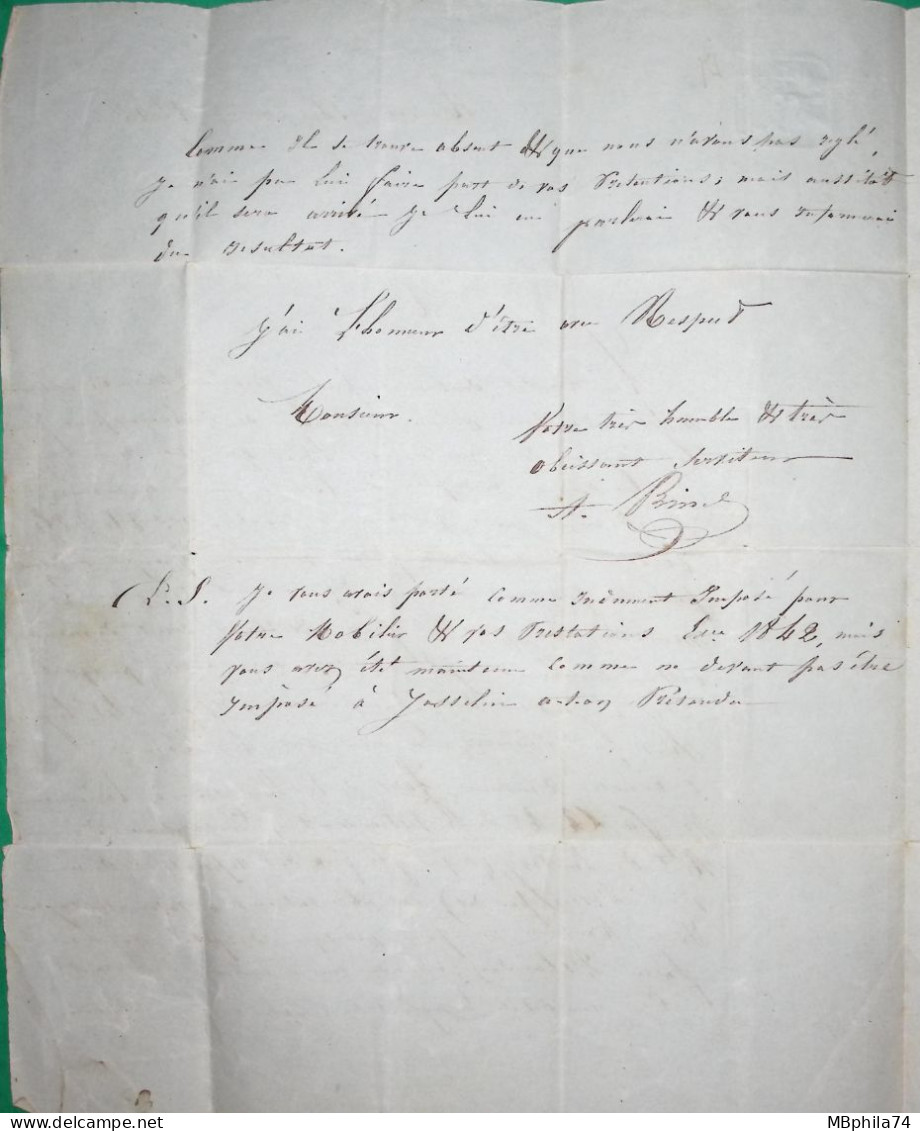 Comme il se trouve absent & que nous n'avons pas réglé,
je n'ai pu lui faire part de vos Prétentions; mais aussitôt
qu'il sera arrivé je lui en parlerai & vous informerai
du resultat.
J'ai l'honneur d'être avec Respect
Monsieur.
Votre très humble & très
obeissant serviteur
A.
P.S. Je vous avais porté comme Imposé pour
Votre Mobilier & vos Prestations 1842, mais
vous avez été maintenu comme ne devant pas être
imposé à Josselin
MBphila74